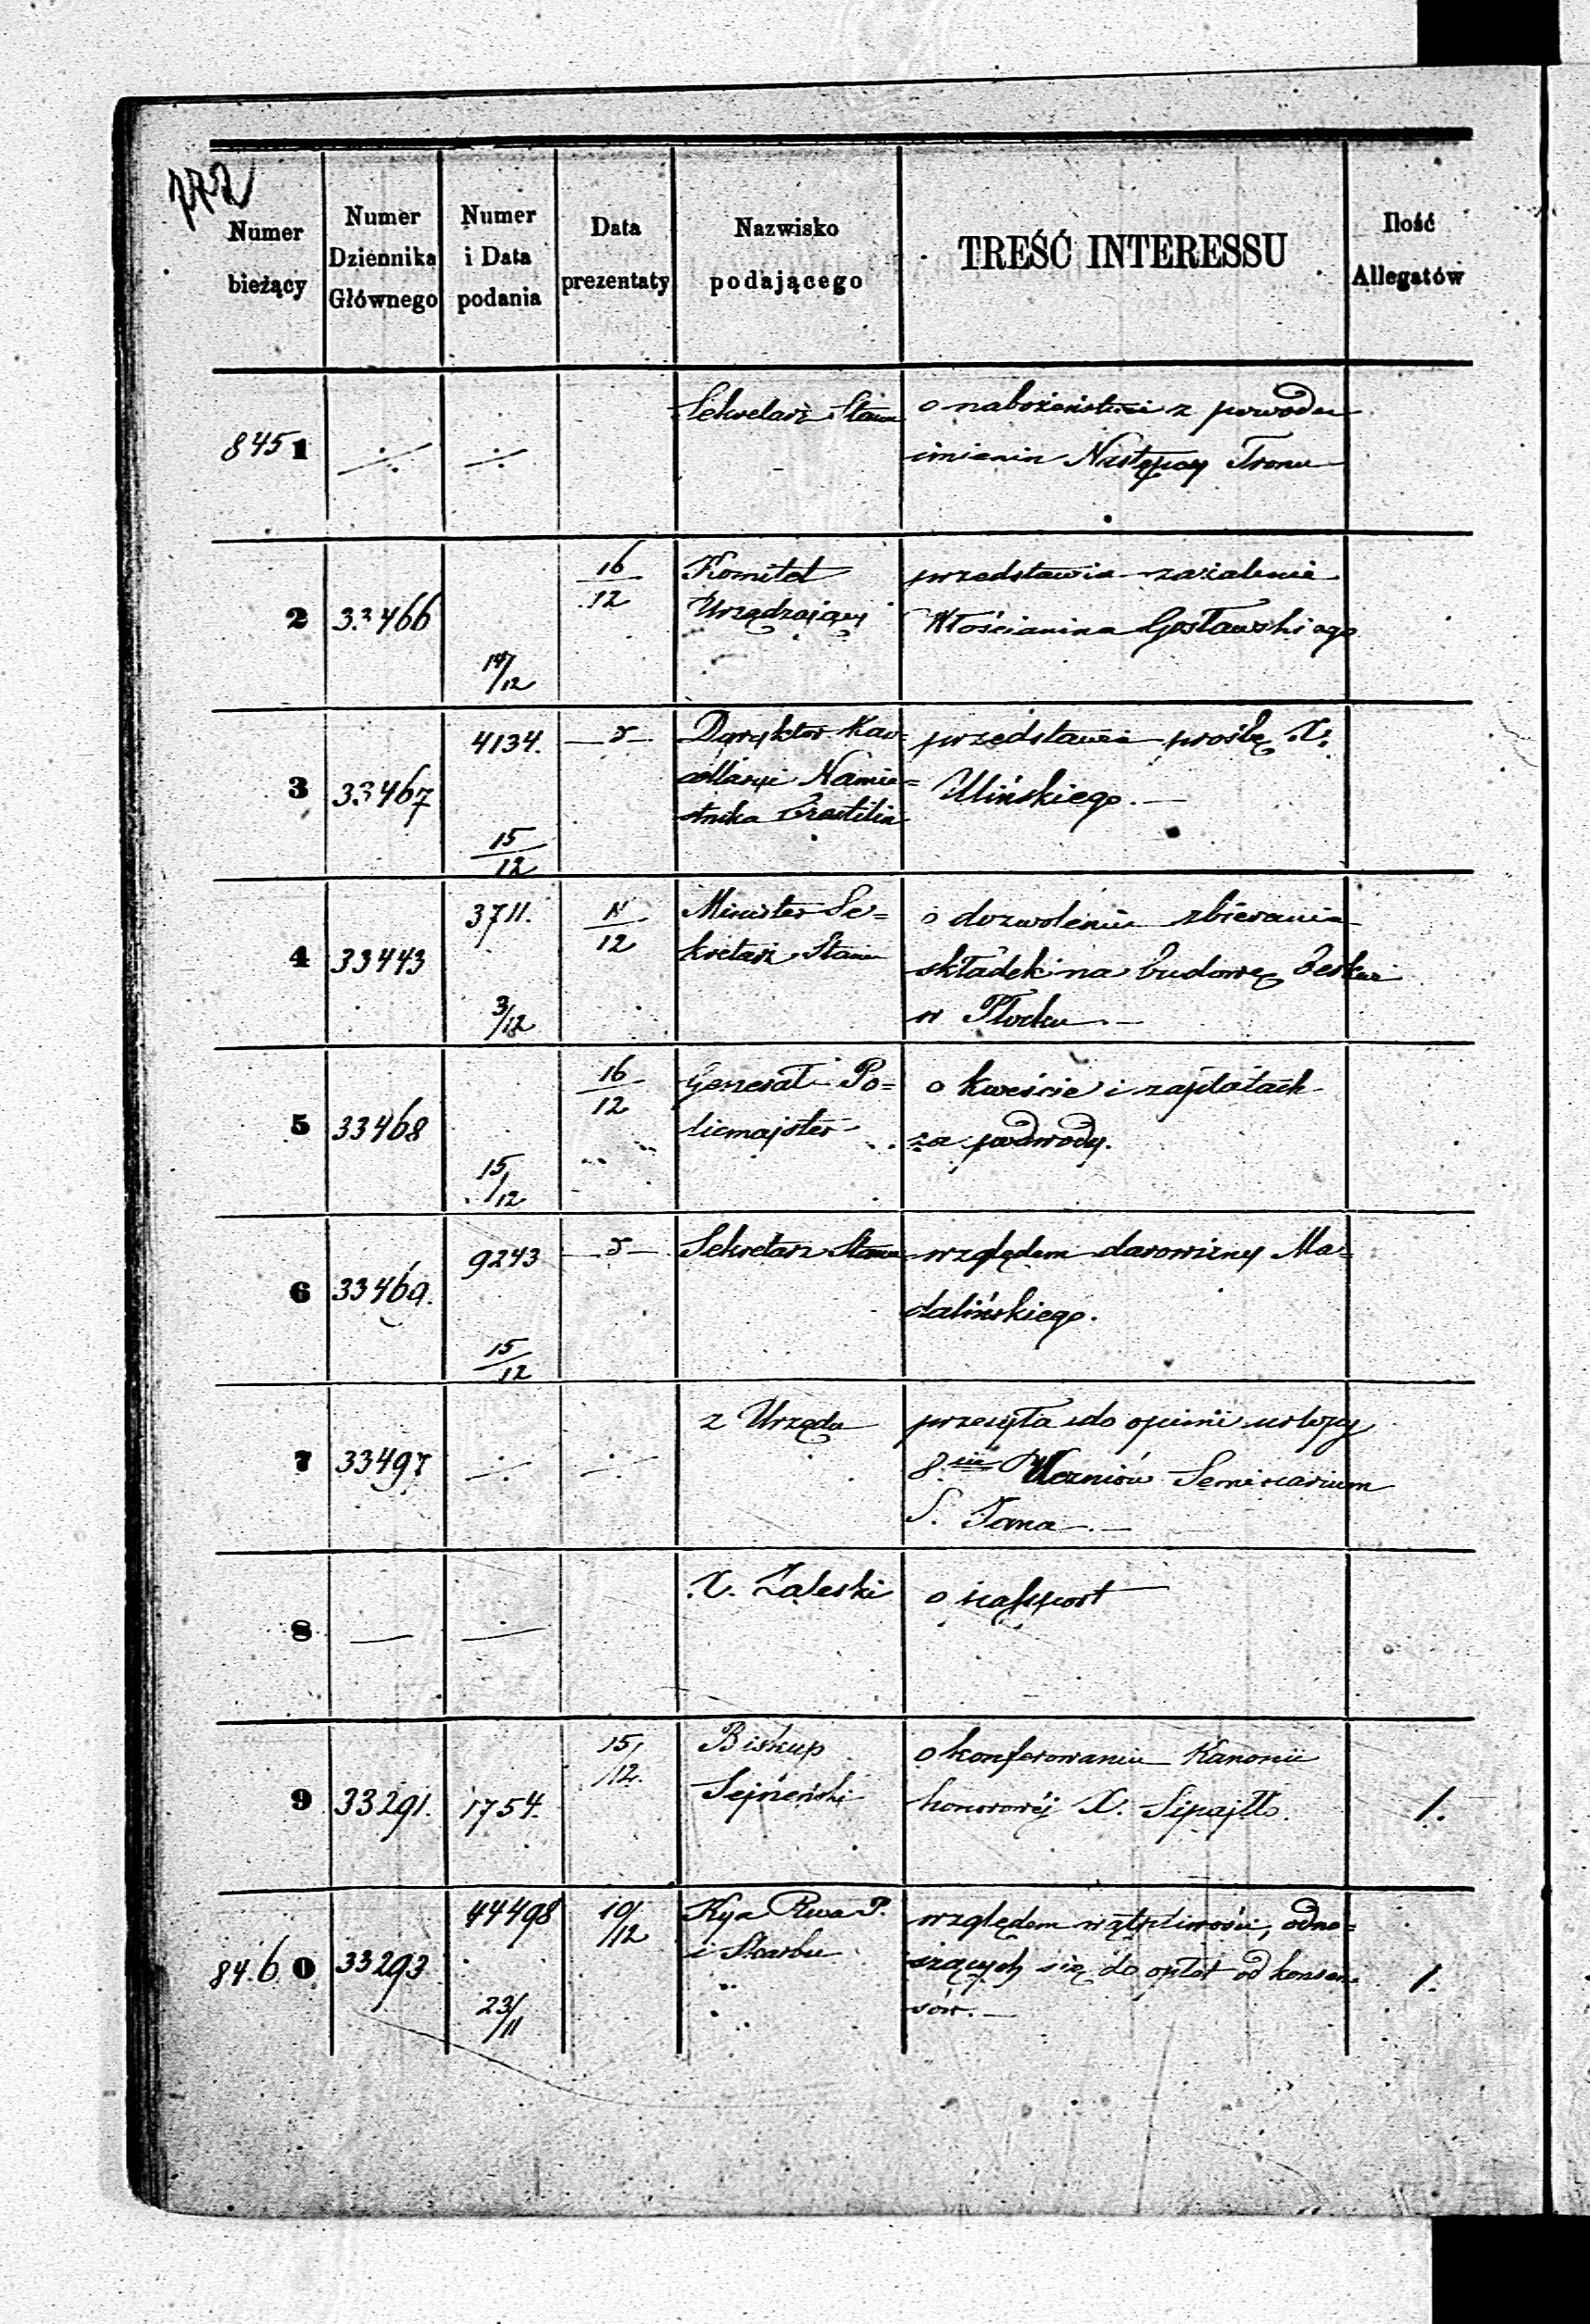 172
Numer bieżący
Numer Dziennika Głównego
Numer i Data podania
Data prezentaty
Nazwisko podającego
TREŚĆ INTERESSU
Ilość Allegatów
8451 ÷ ÷ Sekretarz Stanu o nabożeństwie z powodu
imienin Następcy Tronu
2 33466 14/12 16/12 Komitet
Urządzający
przedstawia zażalenie
Włościanina Gosławskiego
3 33467 4134. 15/12 Dyrektor Kan=
cellaryi Namie=
stnika
przedstawia prośbę X.
Ulińskiego.—
4 33443 3711. 3/12 12 Minister Se=
kretarz Stanu
o dozwolenie zbierania
składek na budowę
w Płocku.—
5 33468 15/12 16/12 Generał Po=
licmajster
o kweście i zapłatach
za podwody.
6 33469. 9243 15/12 Sekretarz Stanu względem darowizny Ma=
dalińskiego.
7 33497 ÷ ÷ z Urzędu przesyła do opinii
8 Uczniów Seminarium
S. Jana.—
8 — ÷ X. Zaleski o paszport
9 33291. 1754. 15/12. Biskup
Sejneński
o konferowaniu Kanonii
honorowéj X. 1.
84.60 33293 44498 23/11 10/12 Kya Rwa P.
i Skarbu
względem wątpliwości, odno=
szących się do opłat od konsen=
sów.—
1.